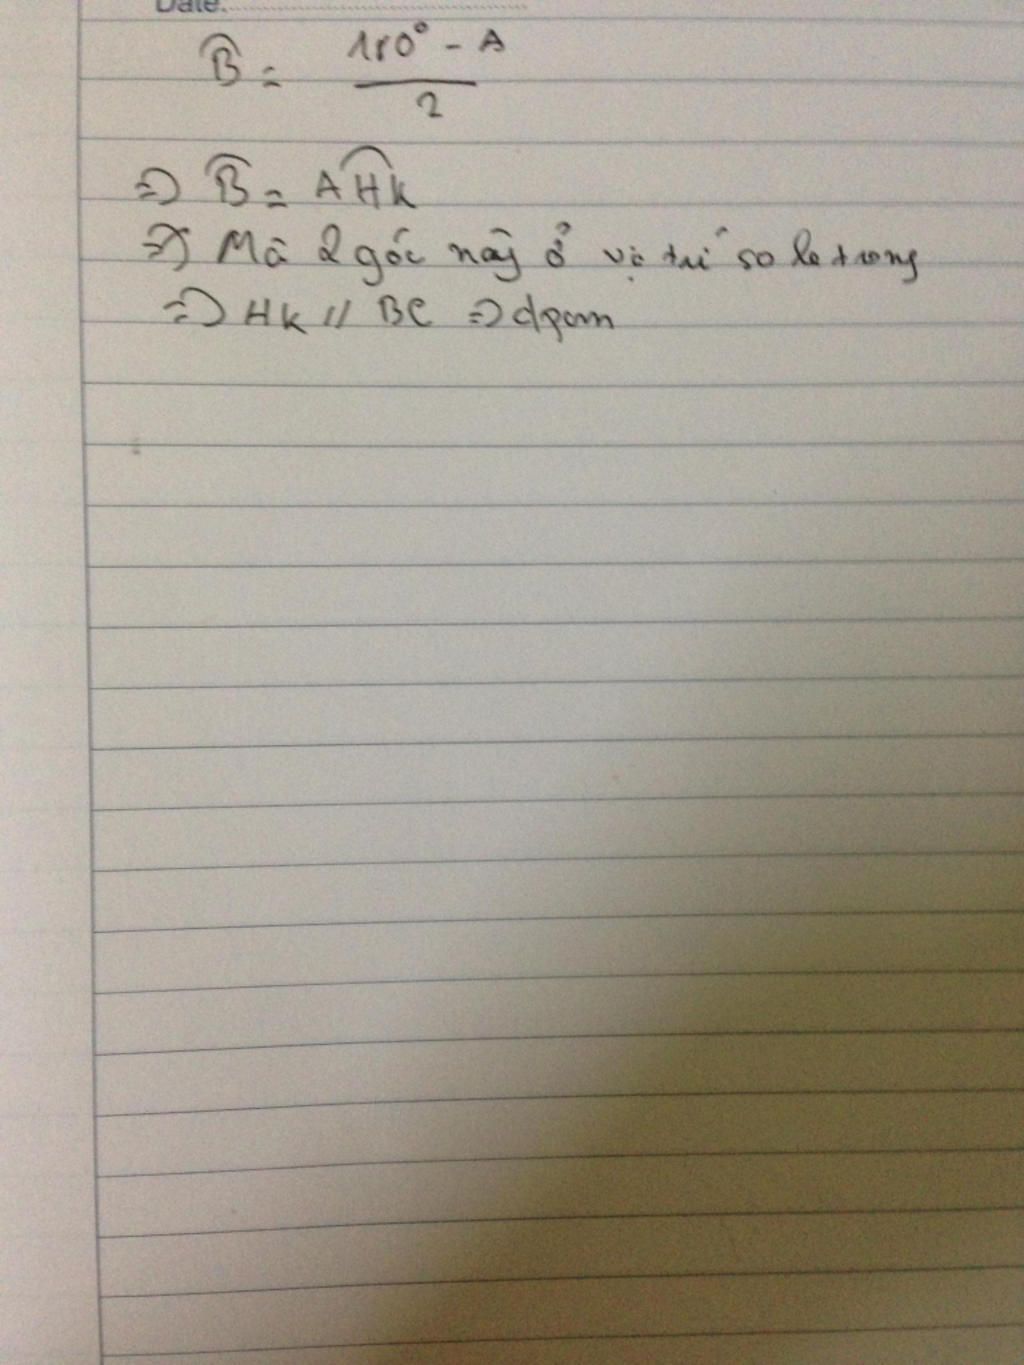 Date:
B̂ = (180° - A) / 2
⇒ B̂ = AĤK
⇒ Mà 2 góc này ở vị trí so le trong
⇒ HK // BC ⇒ đpcm